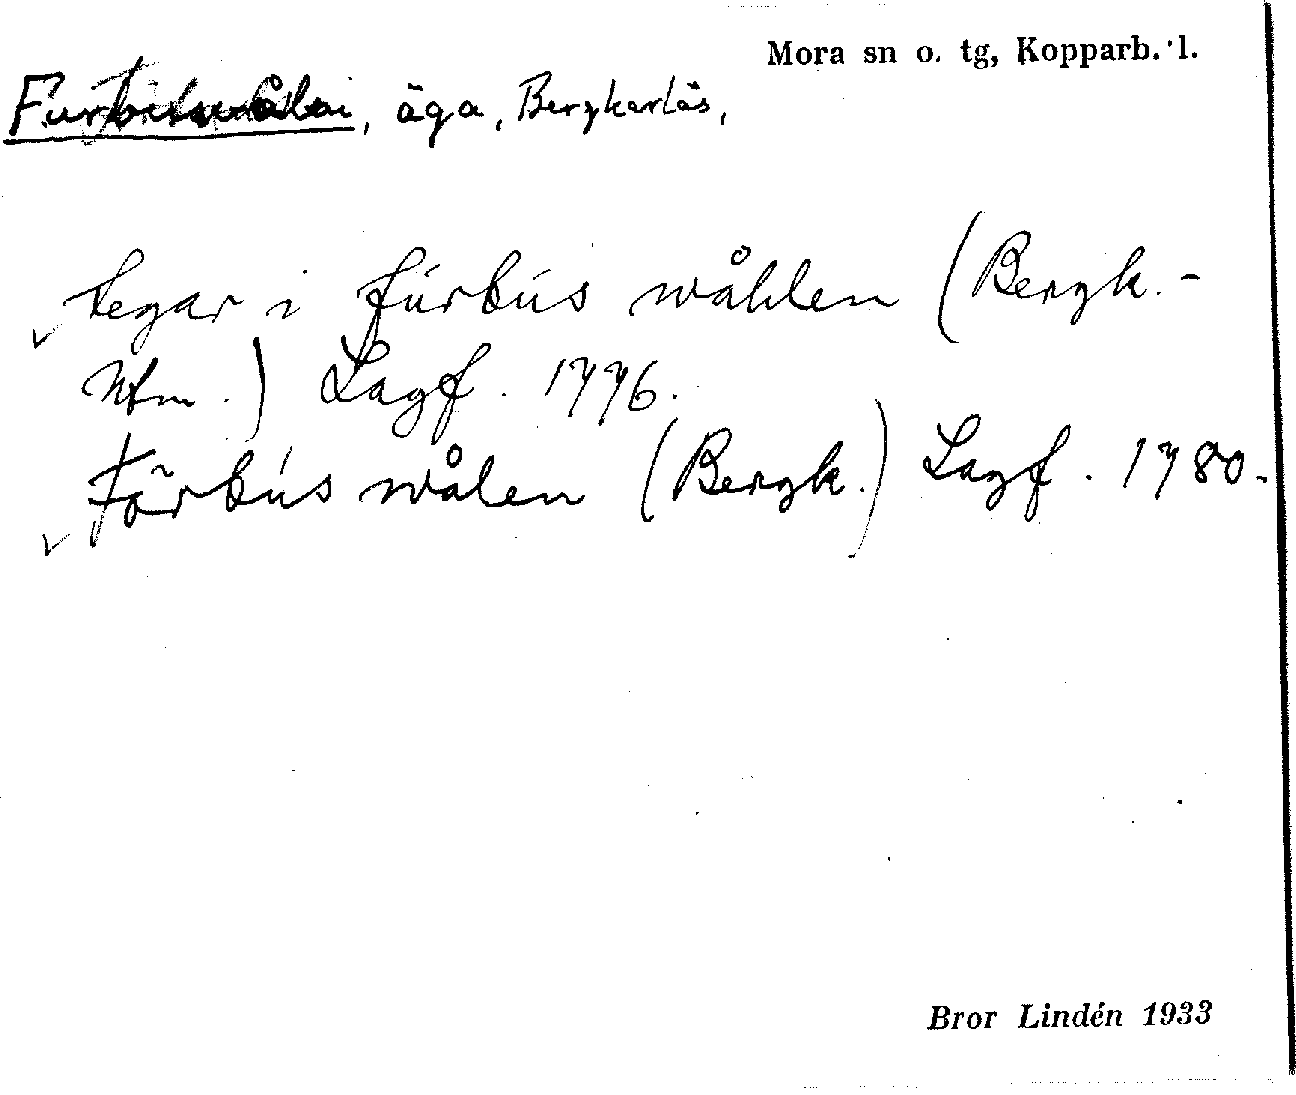 Mora sn o. tg, Kopparb. l.
äga, Bergkarlås,
tegar i fúrbús wåhlen (Bergk.-
Utm.) Lagf. 1776.
Förbús wålen (Bergk.) Lagf. 1780.
Bror Lindén 1933